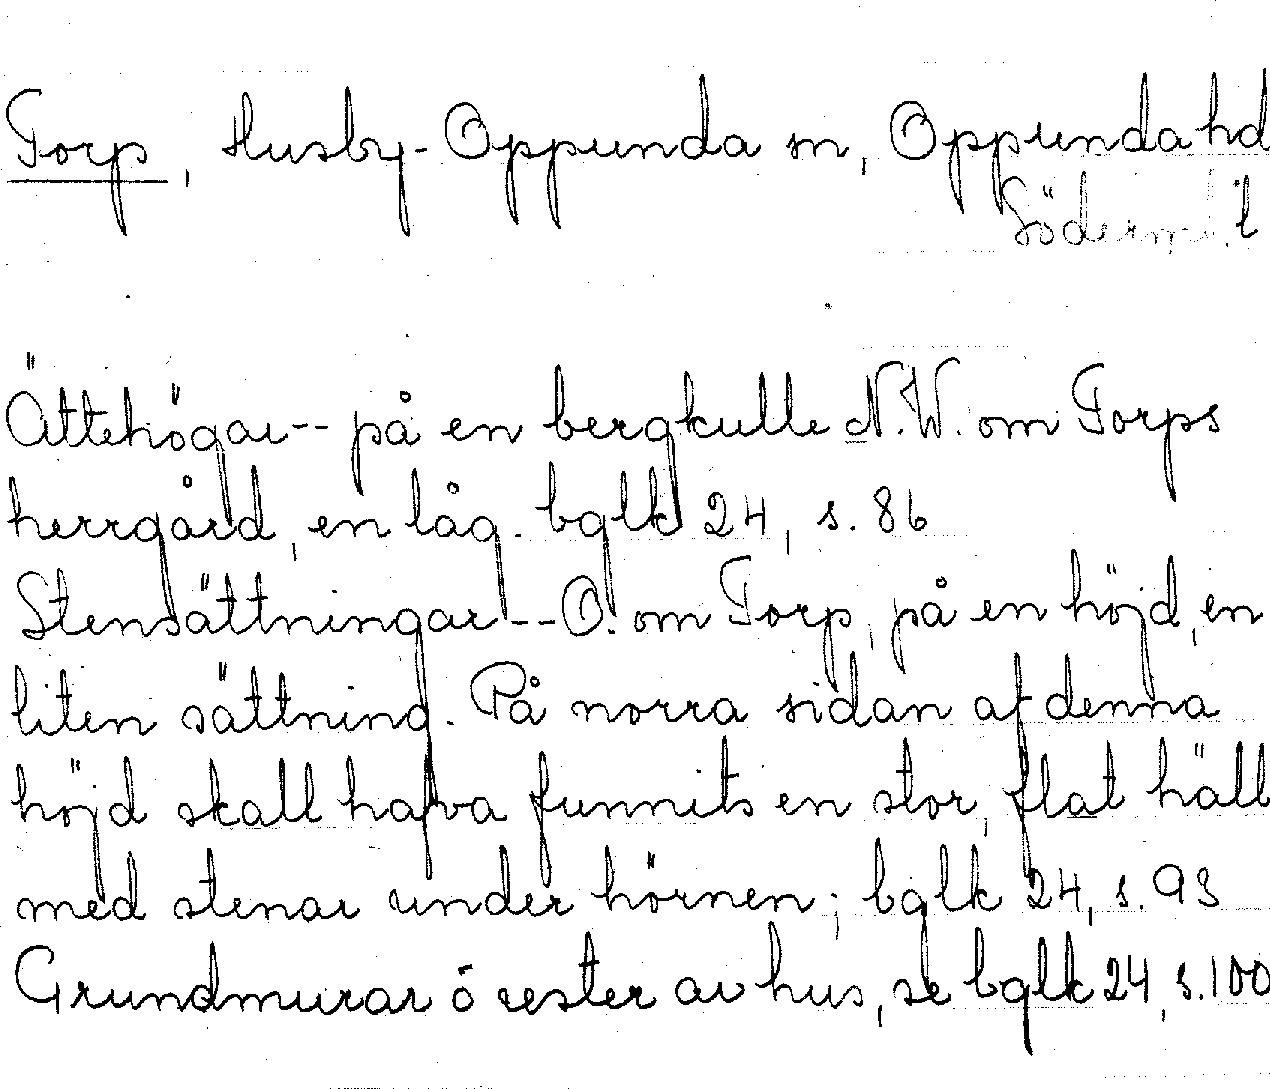 Torp, Husby-Oppunda sn, Oppunda hd
Söderm. l
Ättehögar-- på en bergkulle N.W. om Torps
herrgård, en låg. bglk 24, s. 86
Stensättningar--O. om Torp, på en höjd, en
liten sättning. På norra sidan af denna
höjd skall hafva funnits en stor, flat häll
med stenar under hörnen; bglk 24, s. 93
Grundmurar o rester av hus, se bglk 24, s. 100